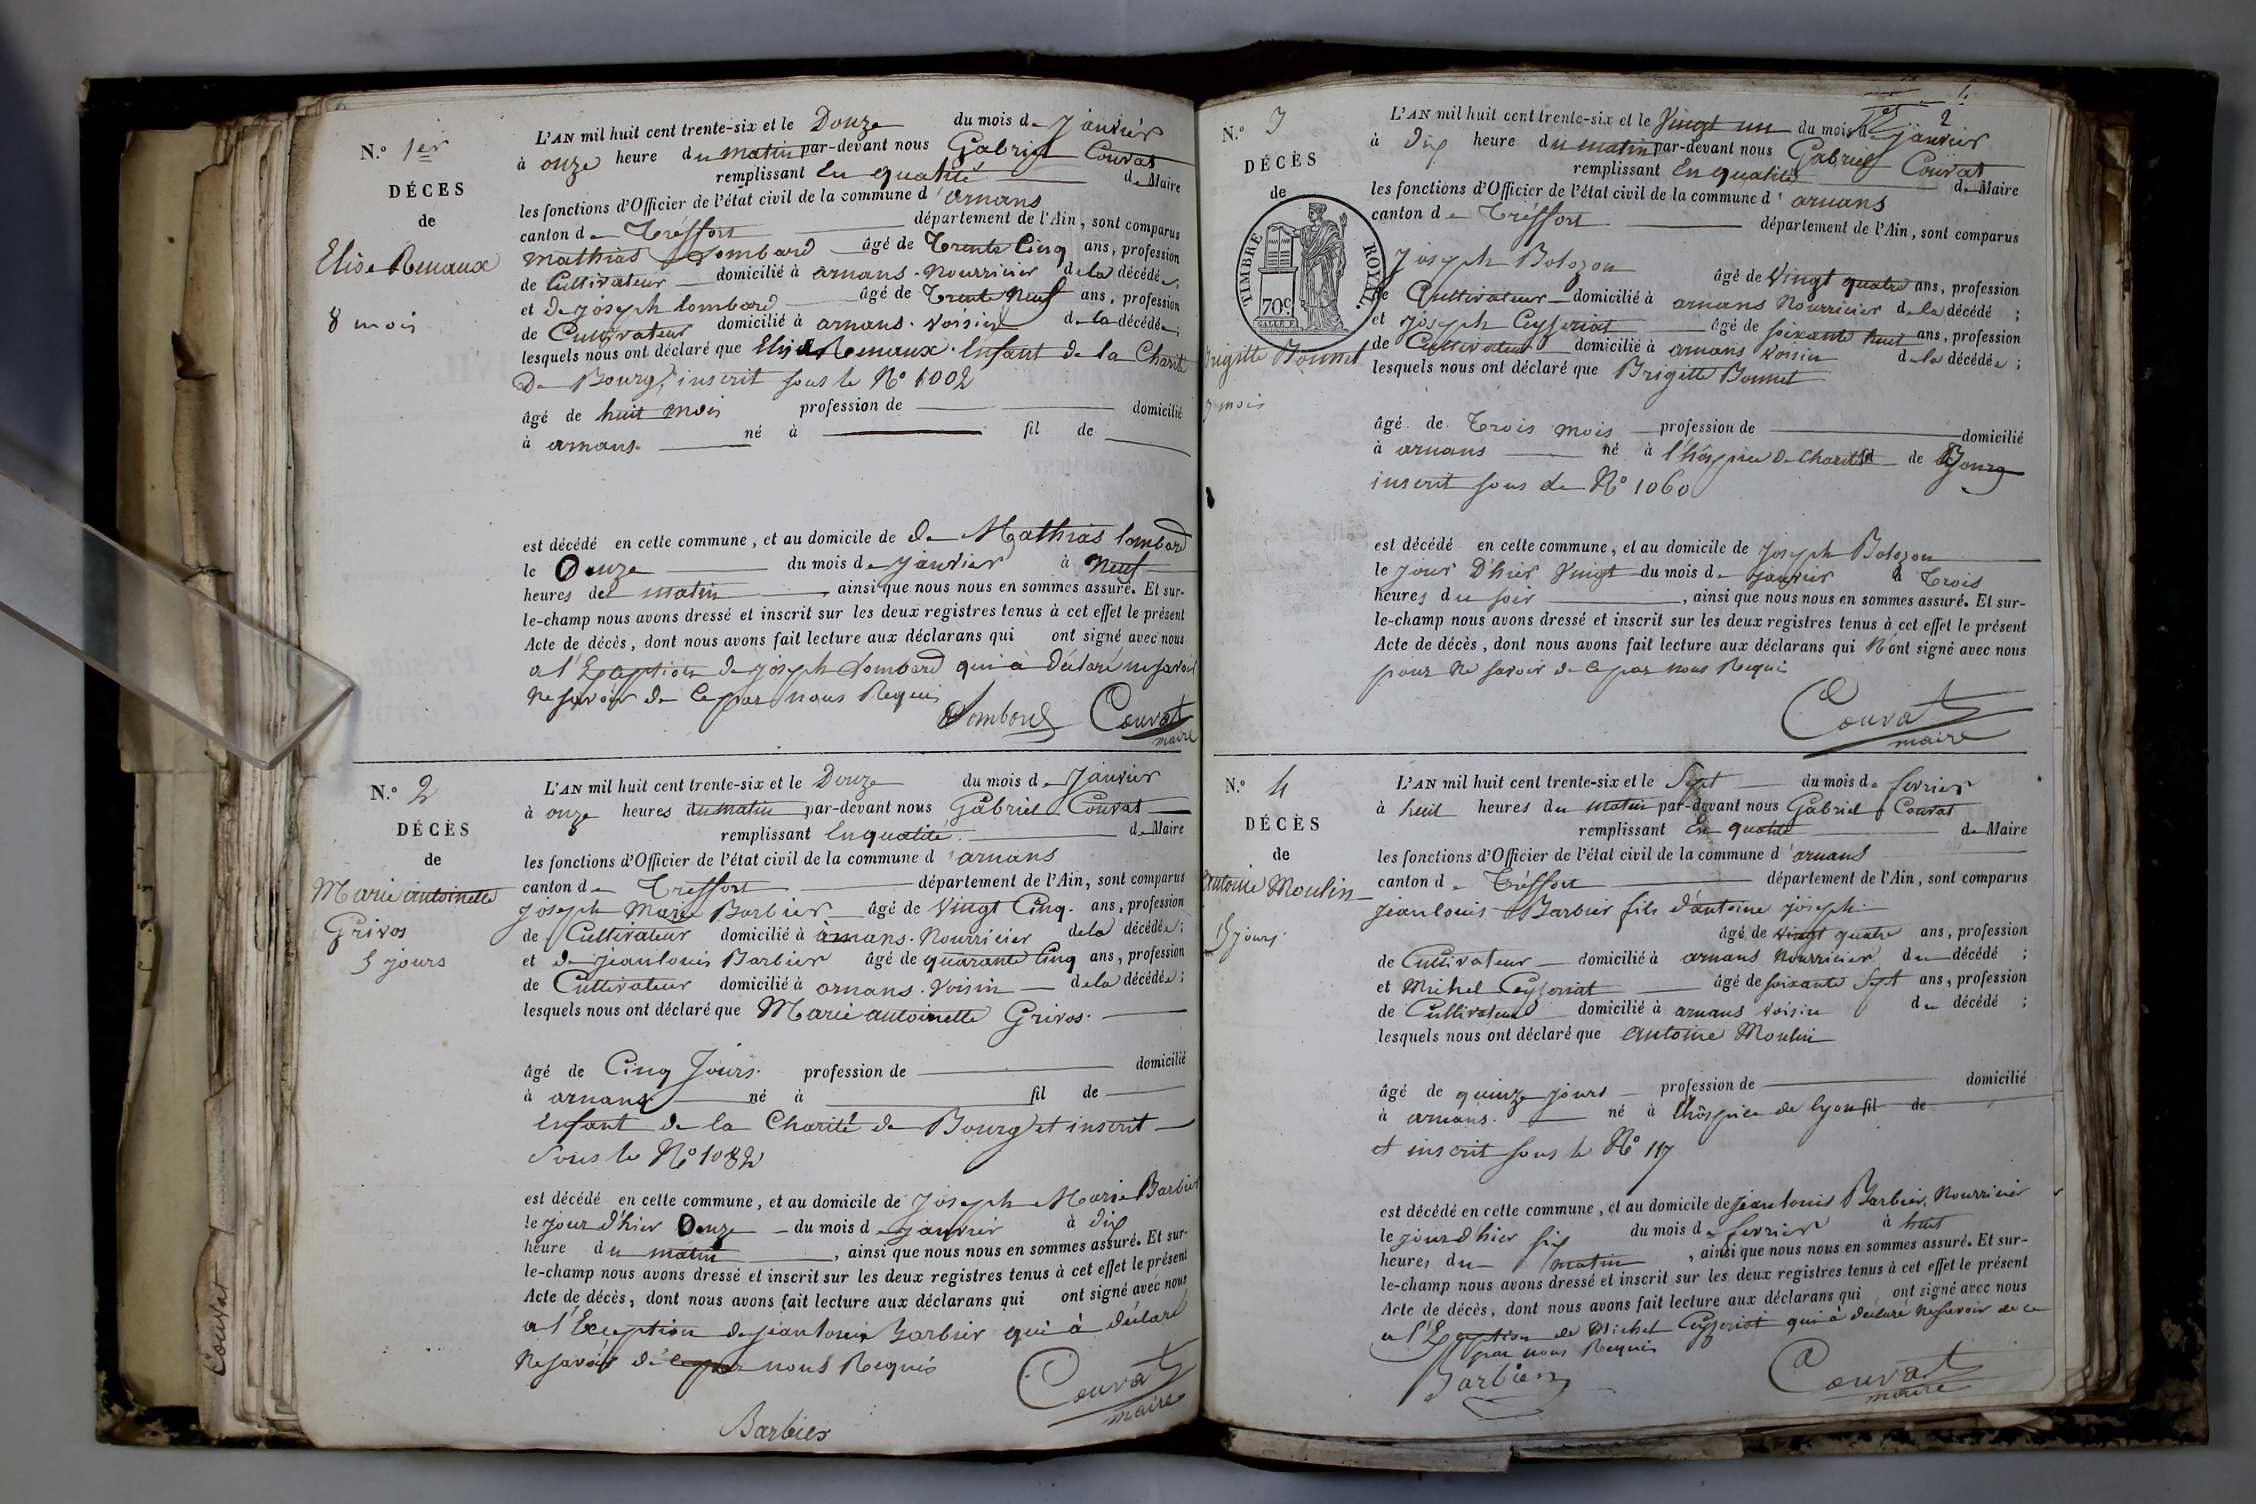 N.º 1er
DÉCES
de
Elise Renaux
8 mois
L'AN mil huit cent trente-six et le Douze du mois de Janvier
à onze heure du matin par-devant nous Gabriel Couvat
remplissant En qualité de Maire
les fonctions d'Officier de l'état civil de la commune d'arnans
canton de Tréffort département de l'Ain, sont comparus
mathias Lombard âgé de Trente Cinq ans, profession
de Cultivateur domicilié à arnans. Nourricier de la décédée;
et de joseph Lombard âgé de Trente Neuf ans, profession
de Cultivateur domicilié à arnans. Voisin de la décédée;
lesquels nous ont déclaré que Elise Renaux. Enfant de la Charité
De Bourg, inscrit sous le Nº 1002
âgé de huit mois profession de domicilié
à arnans. né à fil de
est décédé en cette commune, et au domicile de de Mathias lombard
le Douze du mois de Janvier à Neuf
heures de matin, ainsi que nous nous en sommes assuré. Et sur-
le-champ nous avons dressé et inscrit sur les deux registres tenus à cet effet le présent
Acte de décès, dont nous avons fait lecture aux déclarans qui ont signé avec nous
a l'Exeption de joseph Lombard qui à déclaré ne savoir
Ne savoir de Ce par nous Requis
Lombard Couvat
maire
N.º 2
DÉCÈS
de
Marie antoinette
Grivos
5 jours
L'AN mil huit cent trente-six et le Douze du mois de Janvier
à onze heures du matin par-devant nous Gabriel Couvat
remplissant En qualité de Maire
les fonctions d'Officier de l'état civil de la commune d'arnans
canton de Treffort département de l'Ain, sont comparus
joseph Marie Barbier âgé de Vingt Cinq. ans, profession
de Cultivateur domicilié à arnans. Nourricier de la décédée;
et de jeanlouis Barbier âgé de quarante Cinq ans, profession
de Cultivateur domicilié à arnans. Voisin de la décédée;
lesquels nous ont déclaré que Marie antoinette Grivos.
âgé de Cinq Jours. profession de domicilié
à arnans né à fil de
Enfant de la Charité de Bourg et inscrit
Sous le Nº 1082
est décédé en cette commune, et au domicile de joseph Marie Barbier
le jour d'hier Onze du mois de janvier à dix
heure du matin, ainsi que nous nous en sommes assuré. Et sur-
le-champ nous avons dressé et inscrit sur les deux registres tenus à cet effet le présent
Acte de décès, dont nous avons fait lecture aux déclarans qui ont signé avec nous
a l'Exception de jeanlouis Barbier qui à déclaré
Ne savoir de ce par nous Requis
Couvat
maire
Barbier
Couvat
2
N.º 3
DÉCÈS
de
TIMBRE ROYAL.
70c.
Brigitte Bonnet
3 mois
L'AN mil huit cent trente-six et le Vingt un du mois de janvier
à Dix heure du matin par-devant nous Gabriel Couvat
remplissant En qualité de Maire
les fonctions d'Officier de l'état civil de la commune d'arnans
canton de Tréffort département de l'Ain, sont comparus
Joseph Bolozon âgé de Vingt quatre ans, profession
de Cultivateur domicilié à arnans Nourricier de la décédé;
et joseph Ceyseriat âgé de soixante huit ans, profession
de Cultivateur domicilié à arnans Voisin de la décédée;
lesquels nous ont déclaré que Brigitte Bonnet
âgé de Trois mois profession de domicilié
à arnans né à l'hospice de Charité fil de Bourg
inscrit sous de Nº 1060
est décédé en cette commune, et au domicile de Joseph Bolozon
le jour D'hier Vingt du mois de janvier à Trois
heures du soir, ainsi que nous nous en sommes assuré. Et sur-
le-champ nous avons dressé et inscrit sur les deux registres tenus à cet effet le présent
Acte de décès, dont nous avons fait lecture aux déclarans qui N'ont signé avec nous
pour Ne savoir de Ce par nous Requi
Couvat
maire
N.º 4
DÉCÈS
de
Antoine Moulin
15 jours.
L'AN mil huit cent trente-six et le Sept du mois de fevrier
à huit heures du matin par-devant nous Gabriel Couvat
remplissant En qualité de Maire
les fonctions d'Officier de l'état civil de la commune d'arnans
canton de Tréffort département de l'Ain, sont comparus
jeanlouis Barbier fils d'antoine joseph
âgé de vingt quatre ans, profession
de Cultivateur domicilié à arnans Nourricier du décédé;
et Michel Ceyseriat âgé de soixante Sept ans, profession
de Cultivateur domicilié à arnans Voisin du décédé;
lesquels nous ont déclaré que antoine Moulin
âgé de quinze jours profession de domicilié
à arnans. né à l'hospice de lyon fil de
et inscrit sous le Nº 117
est décédé en cette commune, et au domicile de jeanlouis Barbier, Nourricier
le jour d'hier six du mois de fevrier à huit
heures du matin, ainsi que nous nous en sommes assuré. Et sur-
le-champ nous avons dressé et inscrit sur les deux registres tenus à cet effet le présent
Acte de décès, dont nous avons fait lecture aux déclarans qui ont signé avec nous
a l'Exeption de Michel Ceyseriat qui à déclaré Ne savoir de ce
par nous Requis
Barbier Couvat
maire